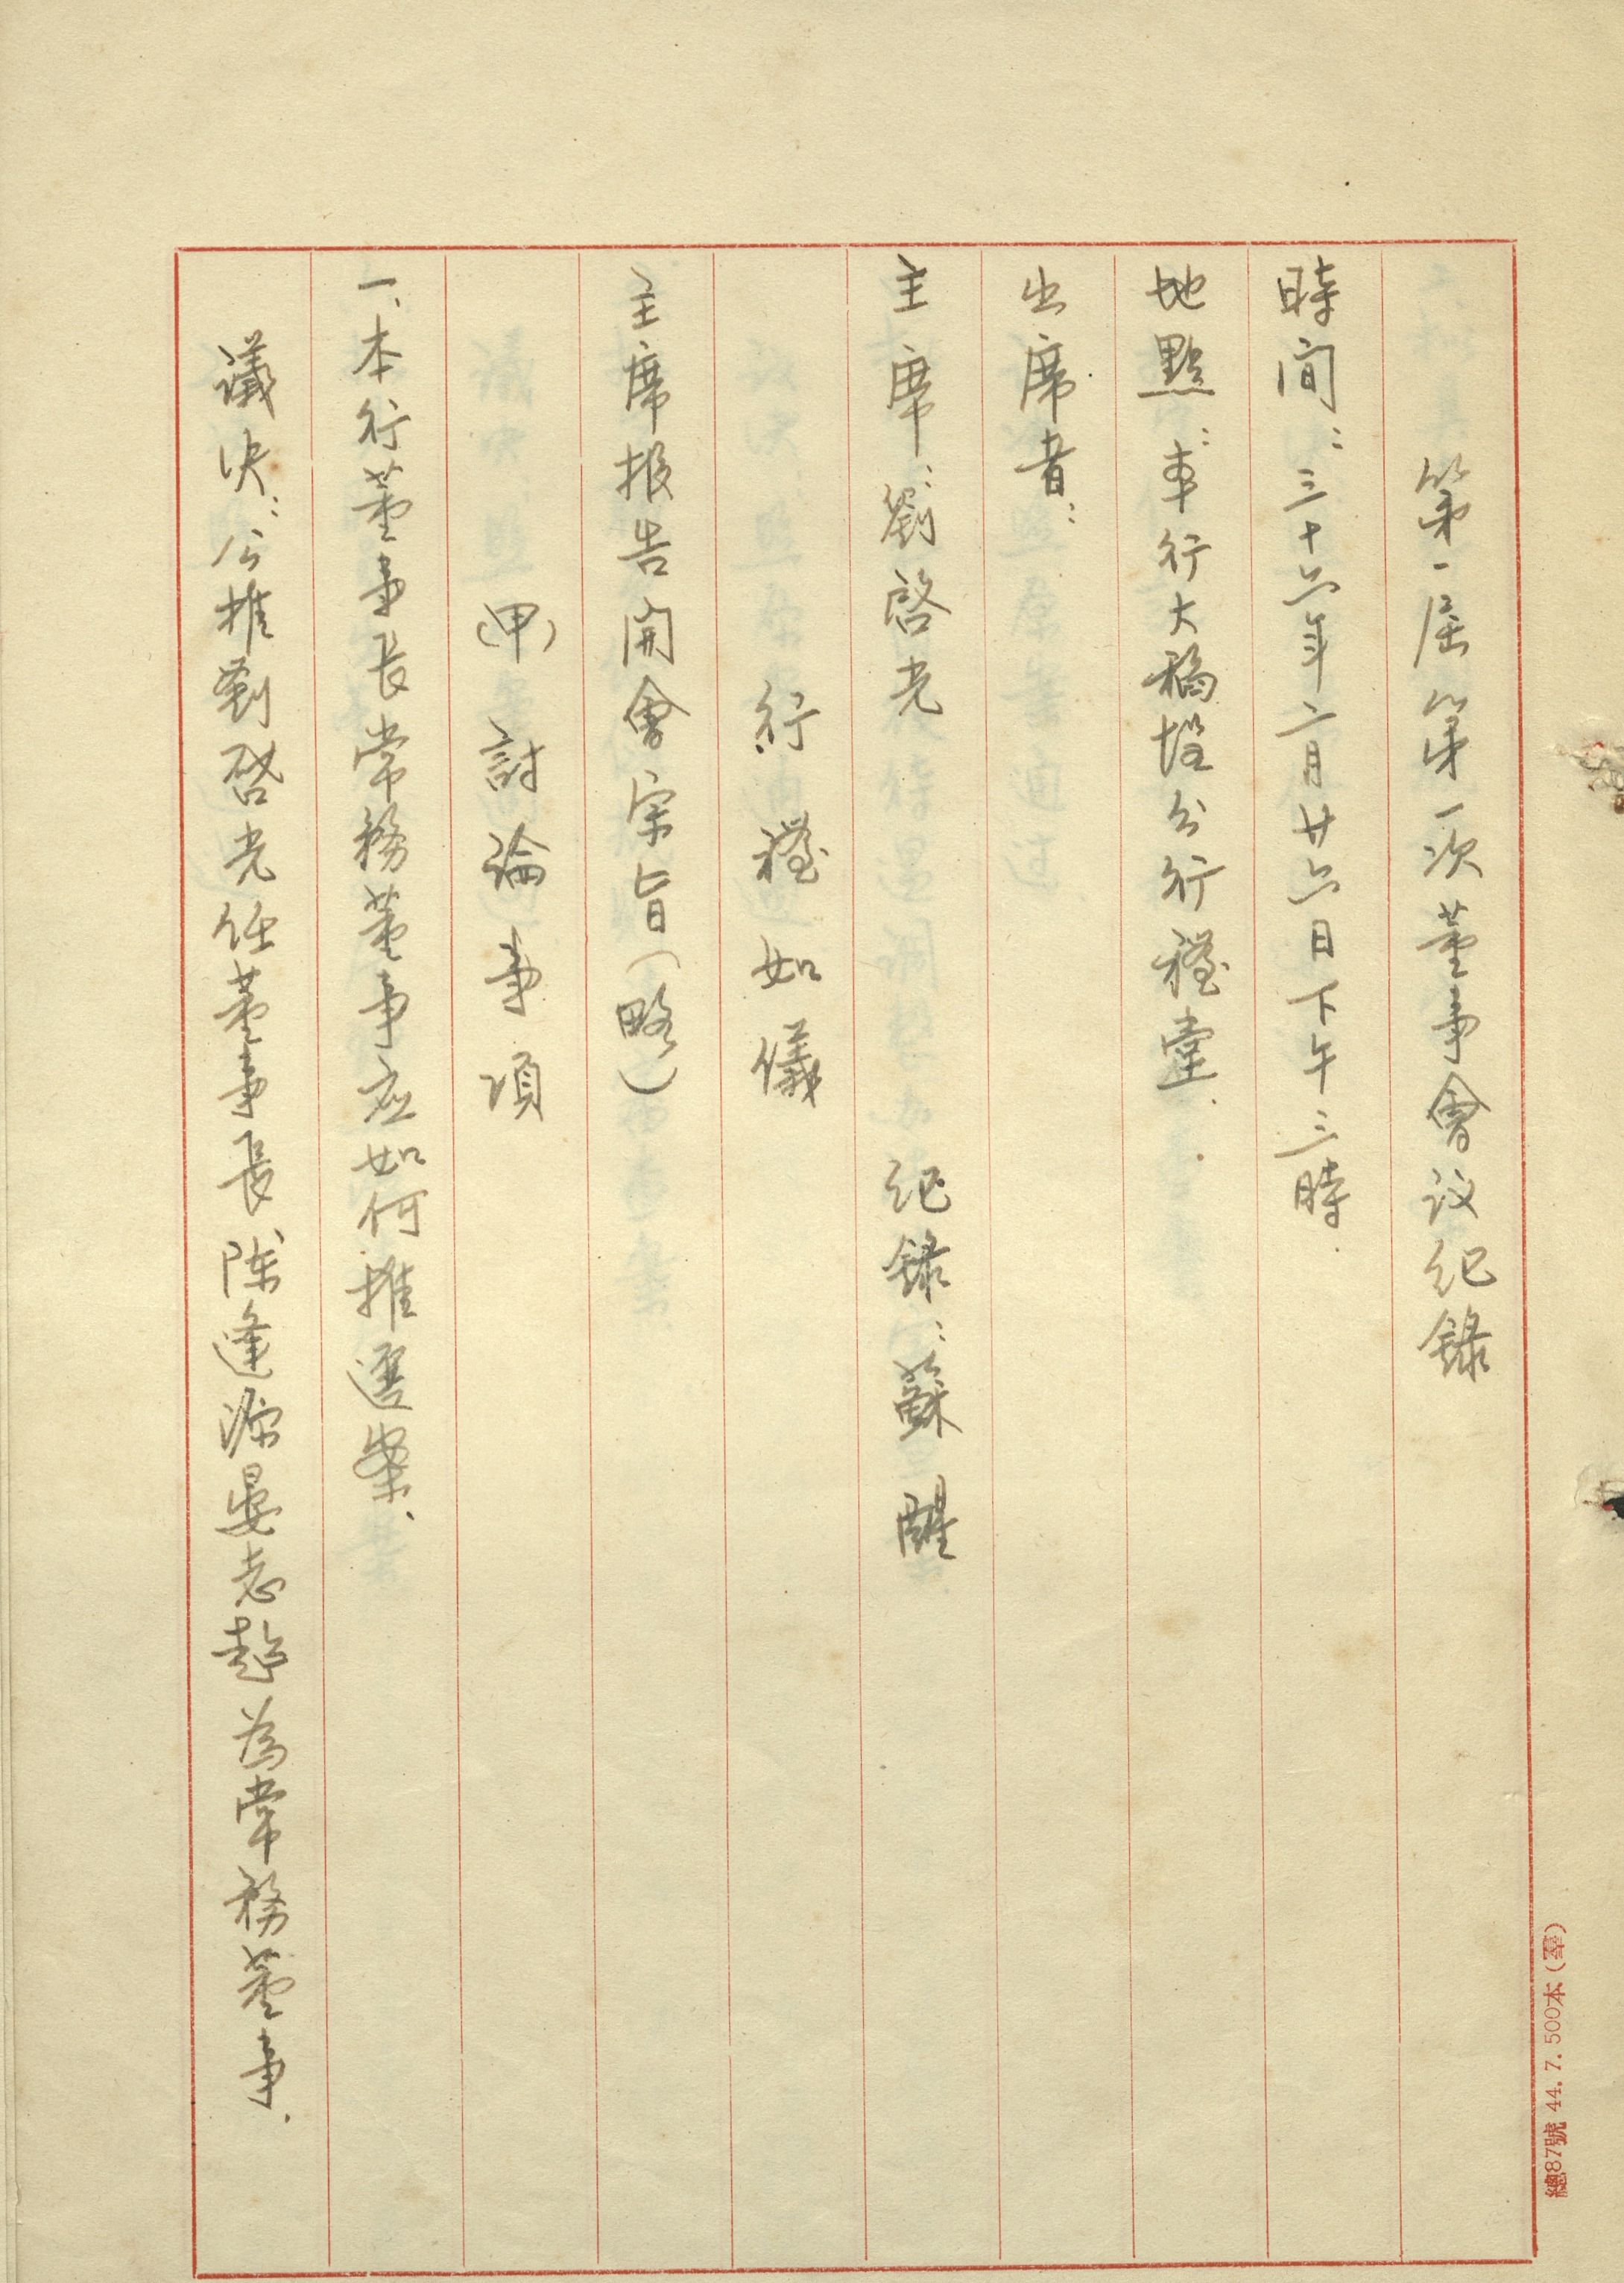 第一屆第一次董事會议纪錄
時间:三十六年二月廿六日下午三時.
地點:本行大稻埕分行禮堂.
出席者:
主席:劉啓光 纪錄:蘇醒
行禮如儀
主席报告開會宗旨(略)
(甲)討論事項
一、本行董事長常務董事应如何推選案.
議决:公推劉啓光任董事長陈逢源晏志超為常務董事.
總87號 44.7.500本(羣)